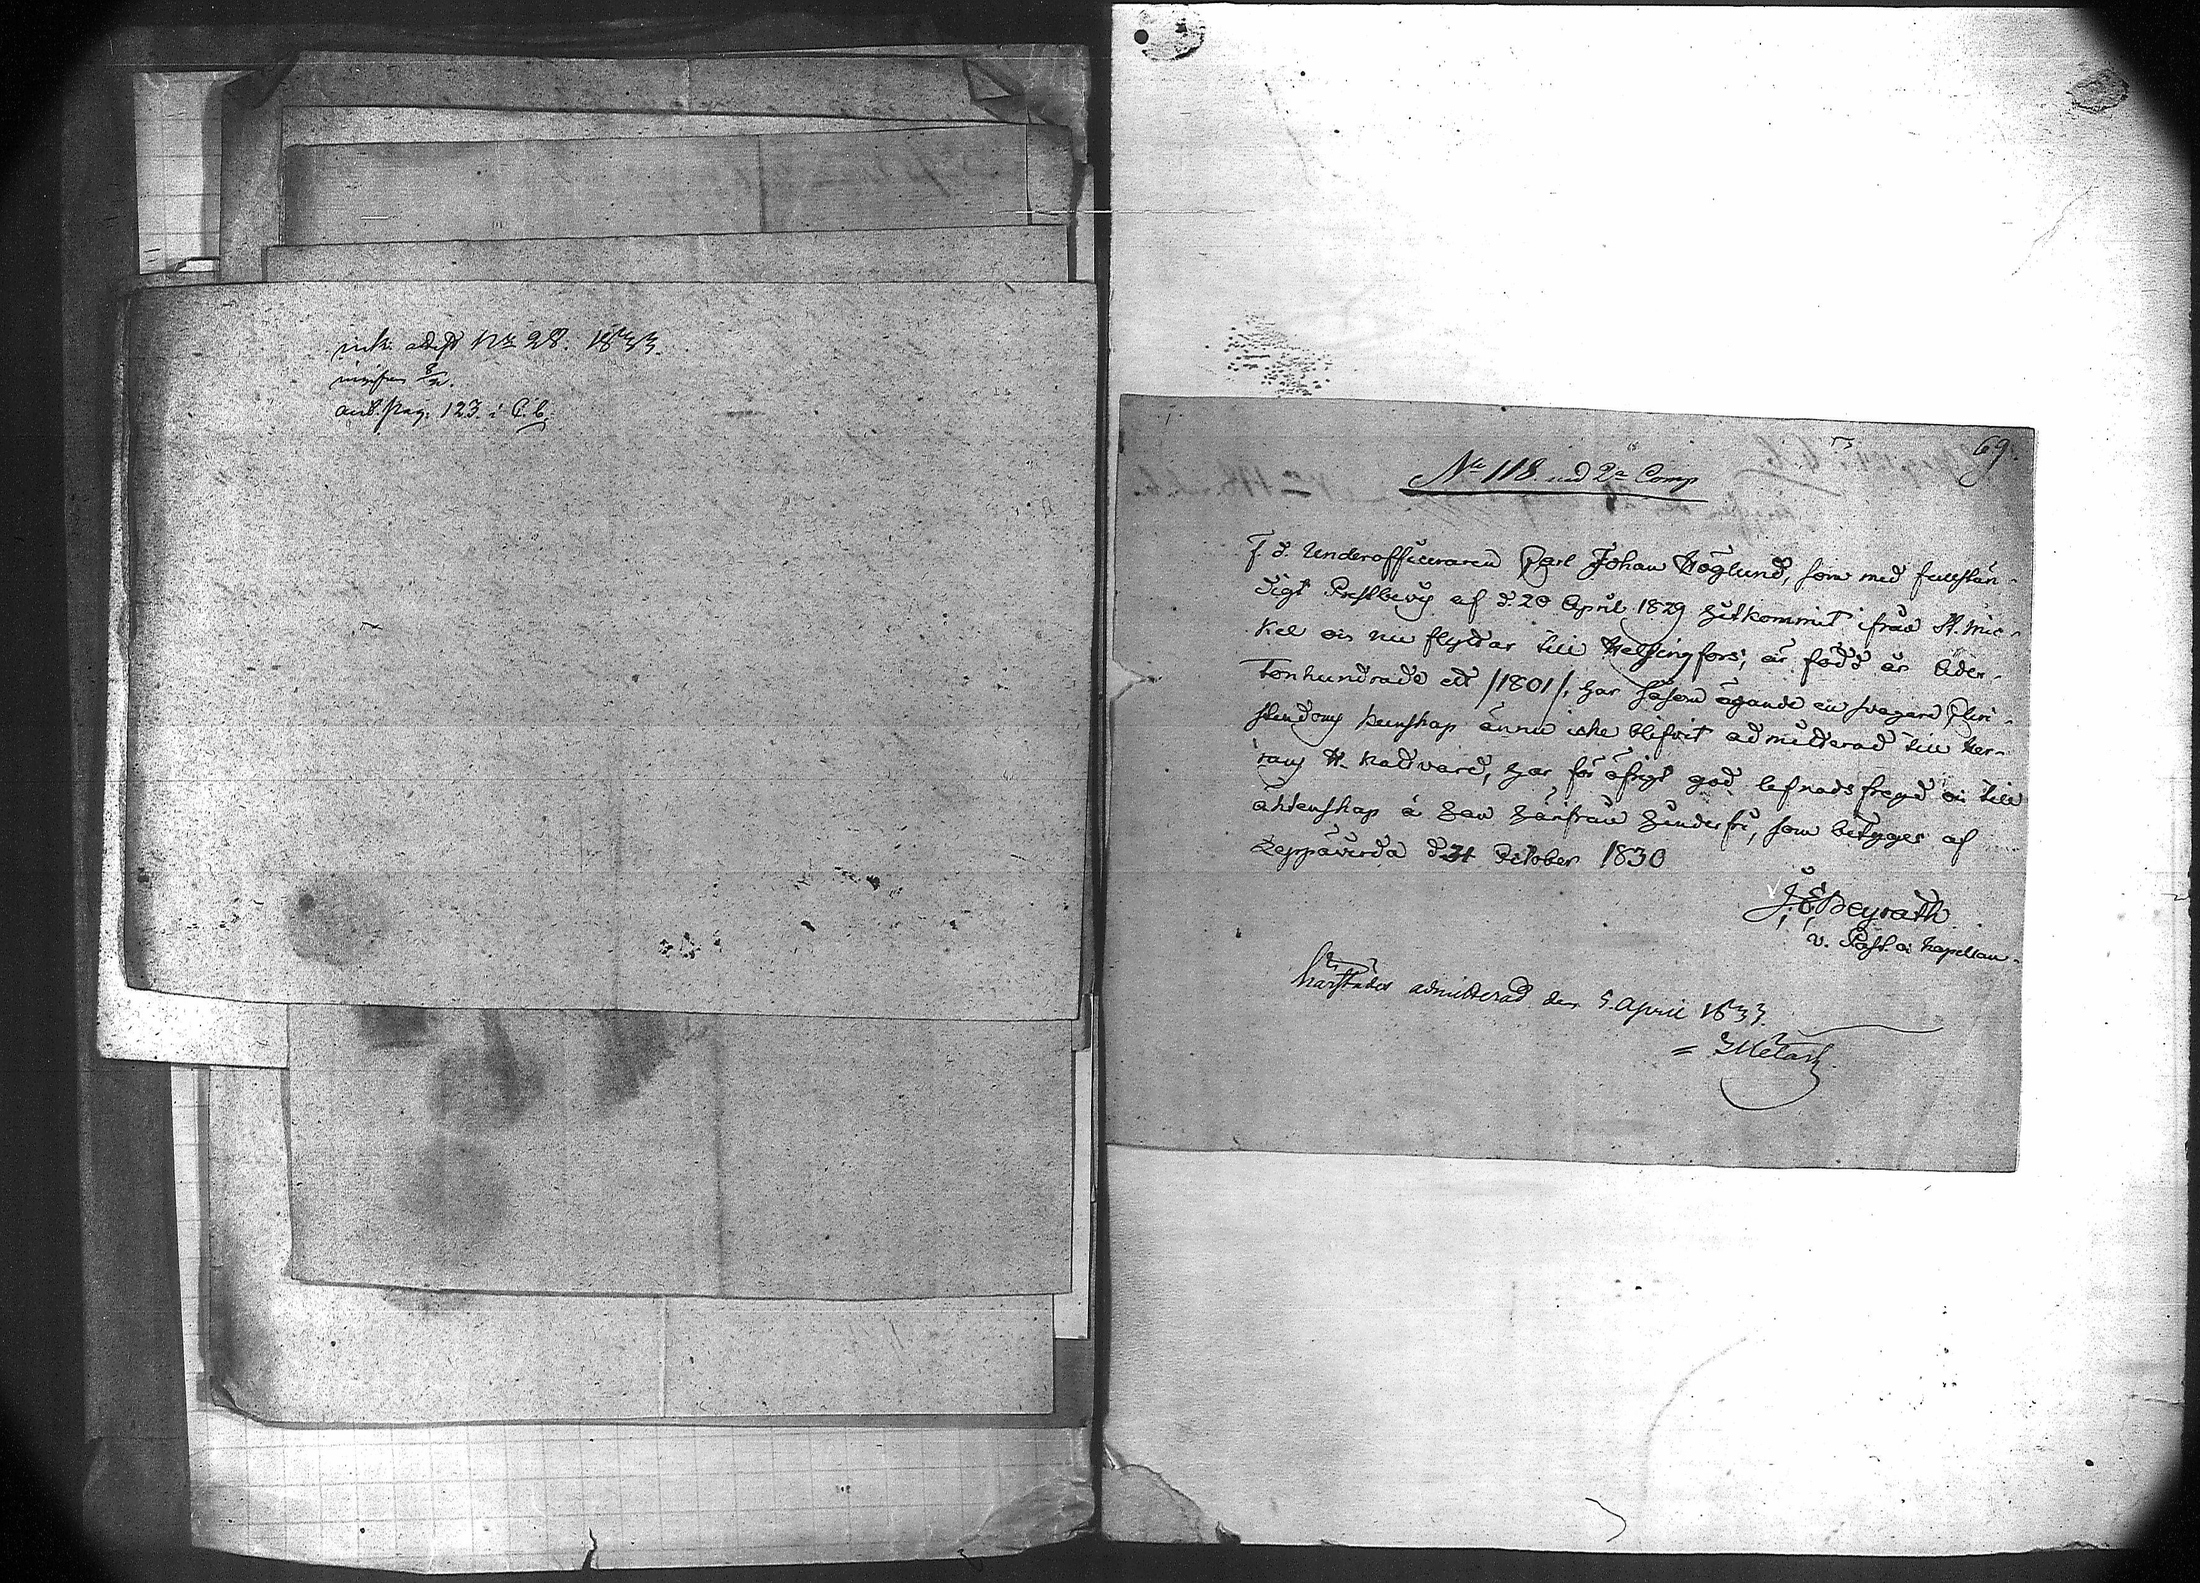 ink. attest No 28. 1833.
ant. pag. 123. i C. b.
69.
No 118 vid 2a Comp
F. d. Underofficeraren Carl Johan Höglund, som med fullstän-
digt Prestbevis af d. 20 April 1829 hitkommit ifrån St. Mic-
kel och nu flyttar till Helsingfors, är född år Ader-
tonhundrade ett /1801/, har såsom ägande en svagare Chri-
stendoms kunskap ännu icke blifvit admitterad till Her-
rans H. Nattvard, har för öfrigt god lefnads fregd och till
äktenskap å han härifrån hinderfri, som betygas af
Leppävirda d. 31 October 1830
J. E. Beyrath
v. Past. o. Kapellan.
Härstädes admitterad den 5 April 1833.